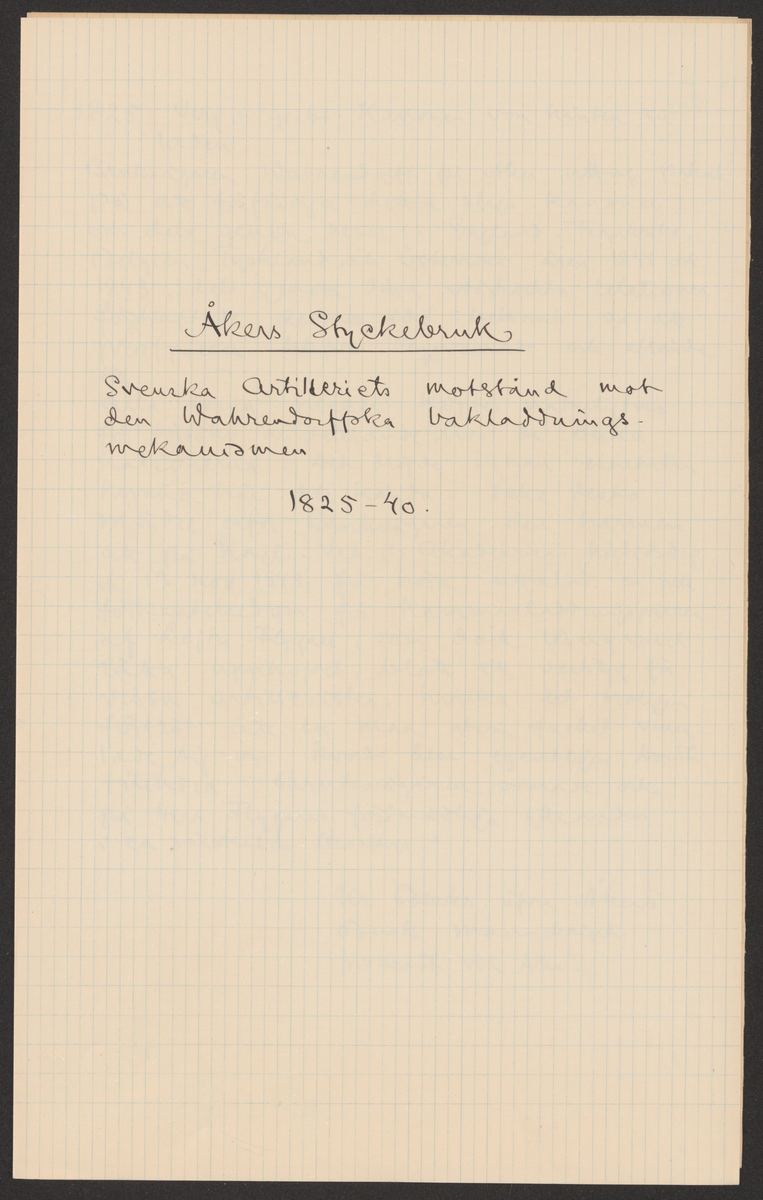 Åkers Styckebruk
Svenska Artilleriets motstånd mot
den Wahrendorffska bakladdnings-
mekanismen
1825-40.